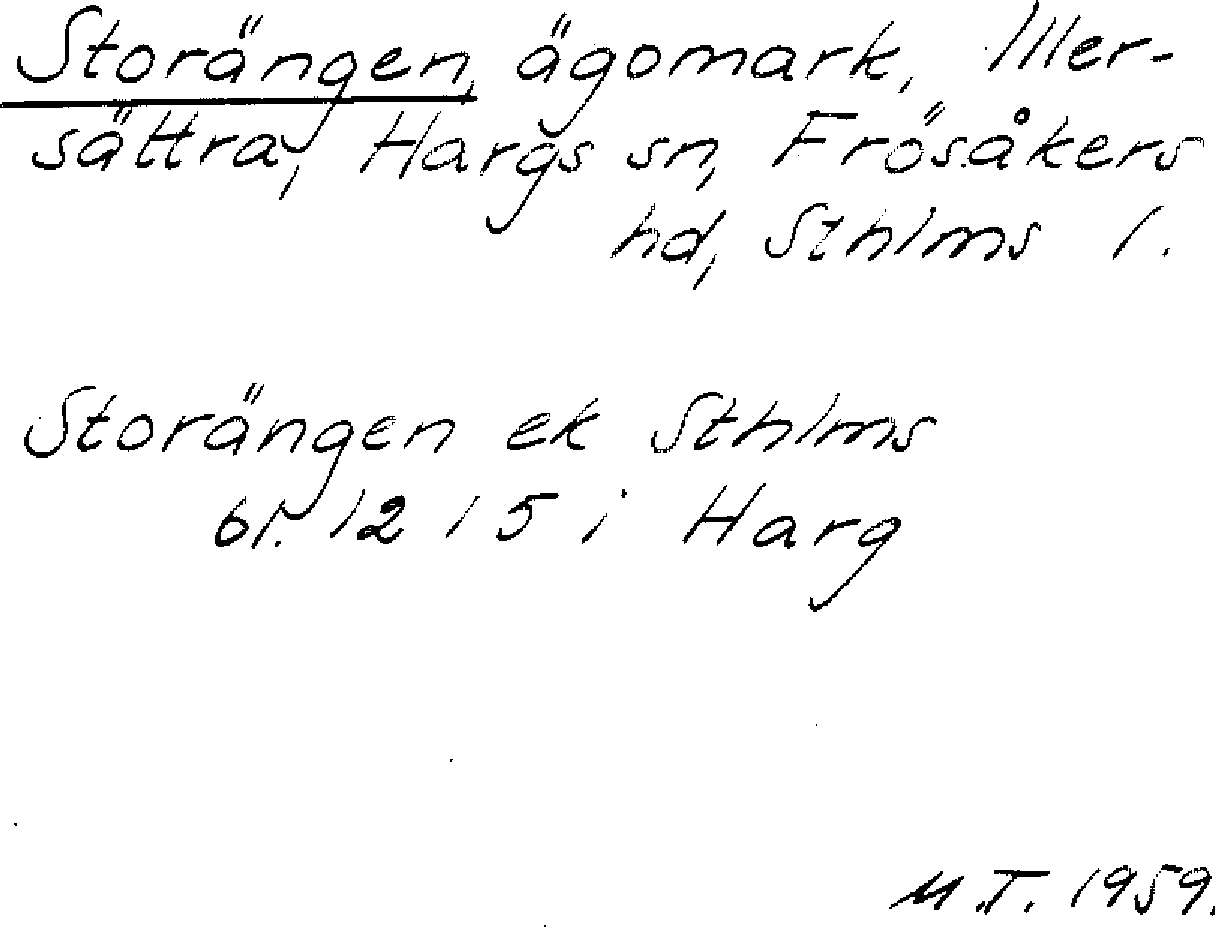 Storängen, ägomark, Iller-
sättra, Hargs sn, Frösåkers
hd, Sthlms l.
Storängen ek Sthlms
bl. 12 15 i Harg
M.T. 1959.